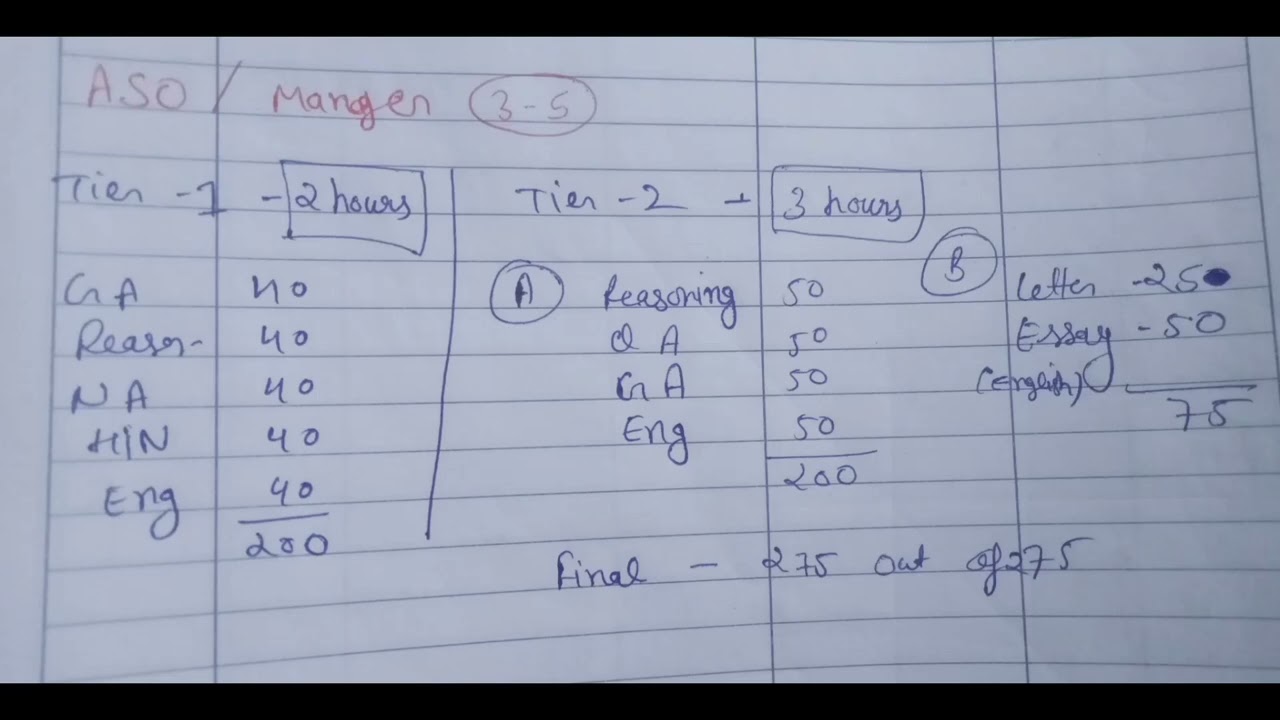 ASO / Manger 3-5
Tier -1 - 2 hours
GA 40
Reason- 40
NA 40
HIN 40
Eng 40
200
Tier -2 - 3 hours
A Reasoning 50
QA 50
GA 50
Eng 50
200
B Letter -25
Essay - 50
(English)
75
Final - 275 out of 275